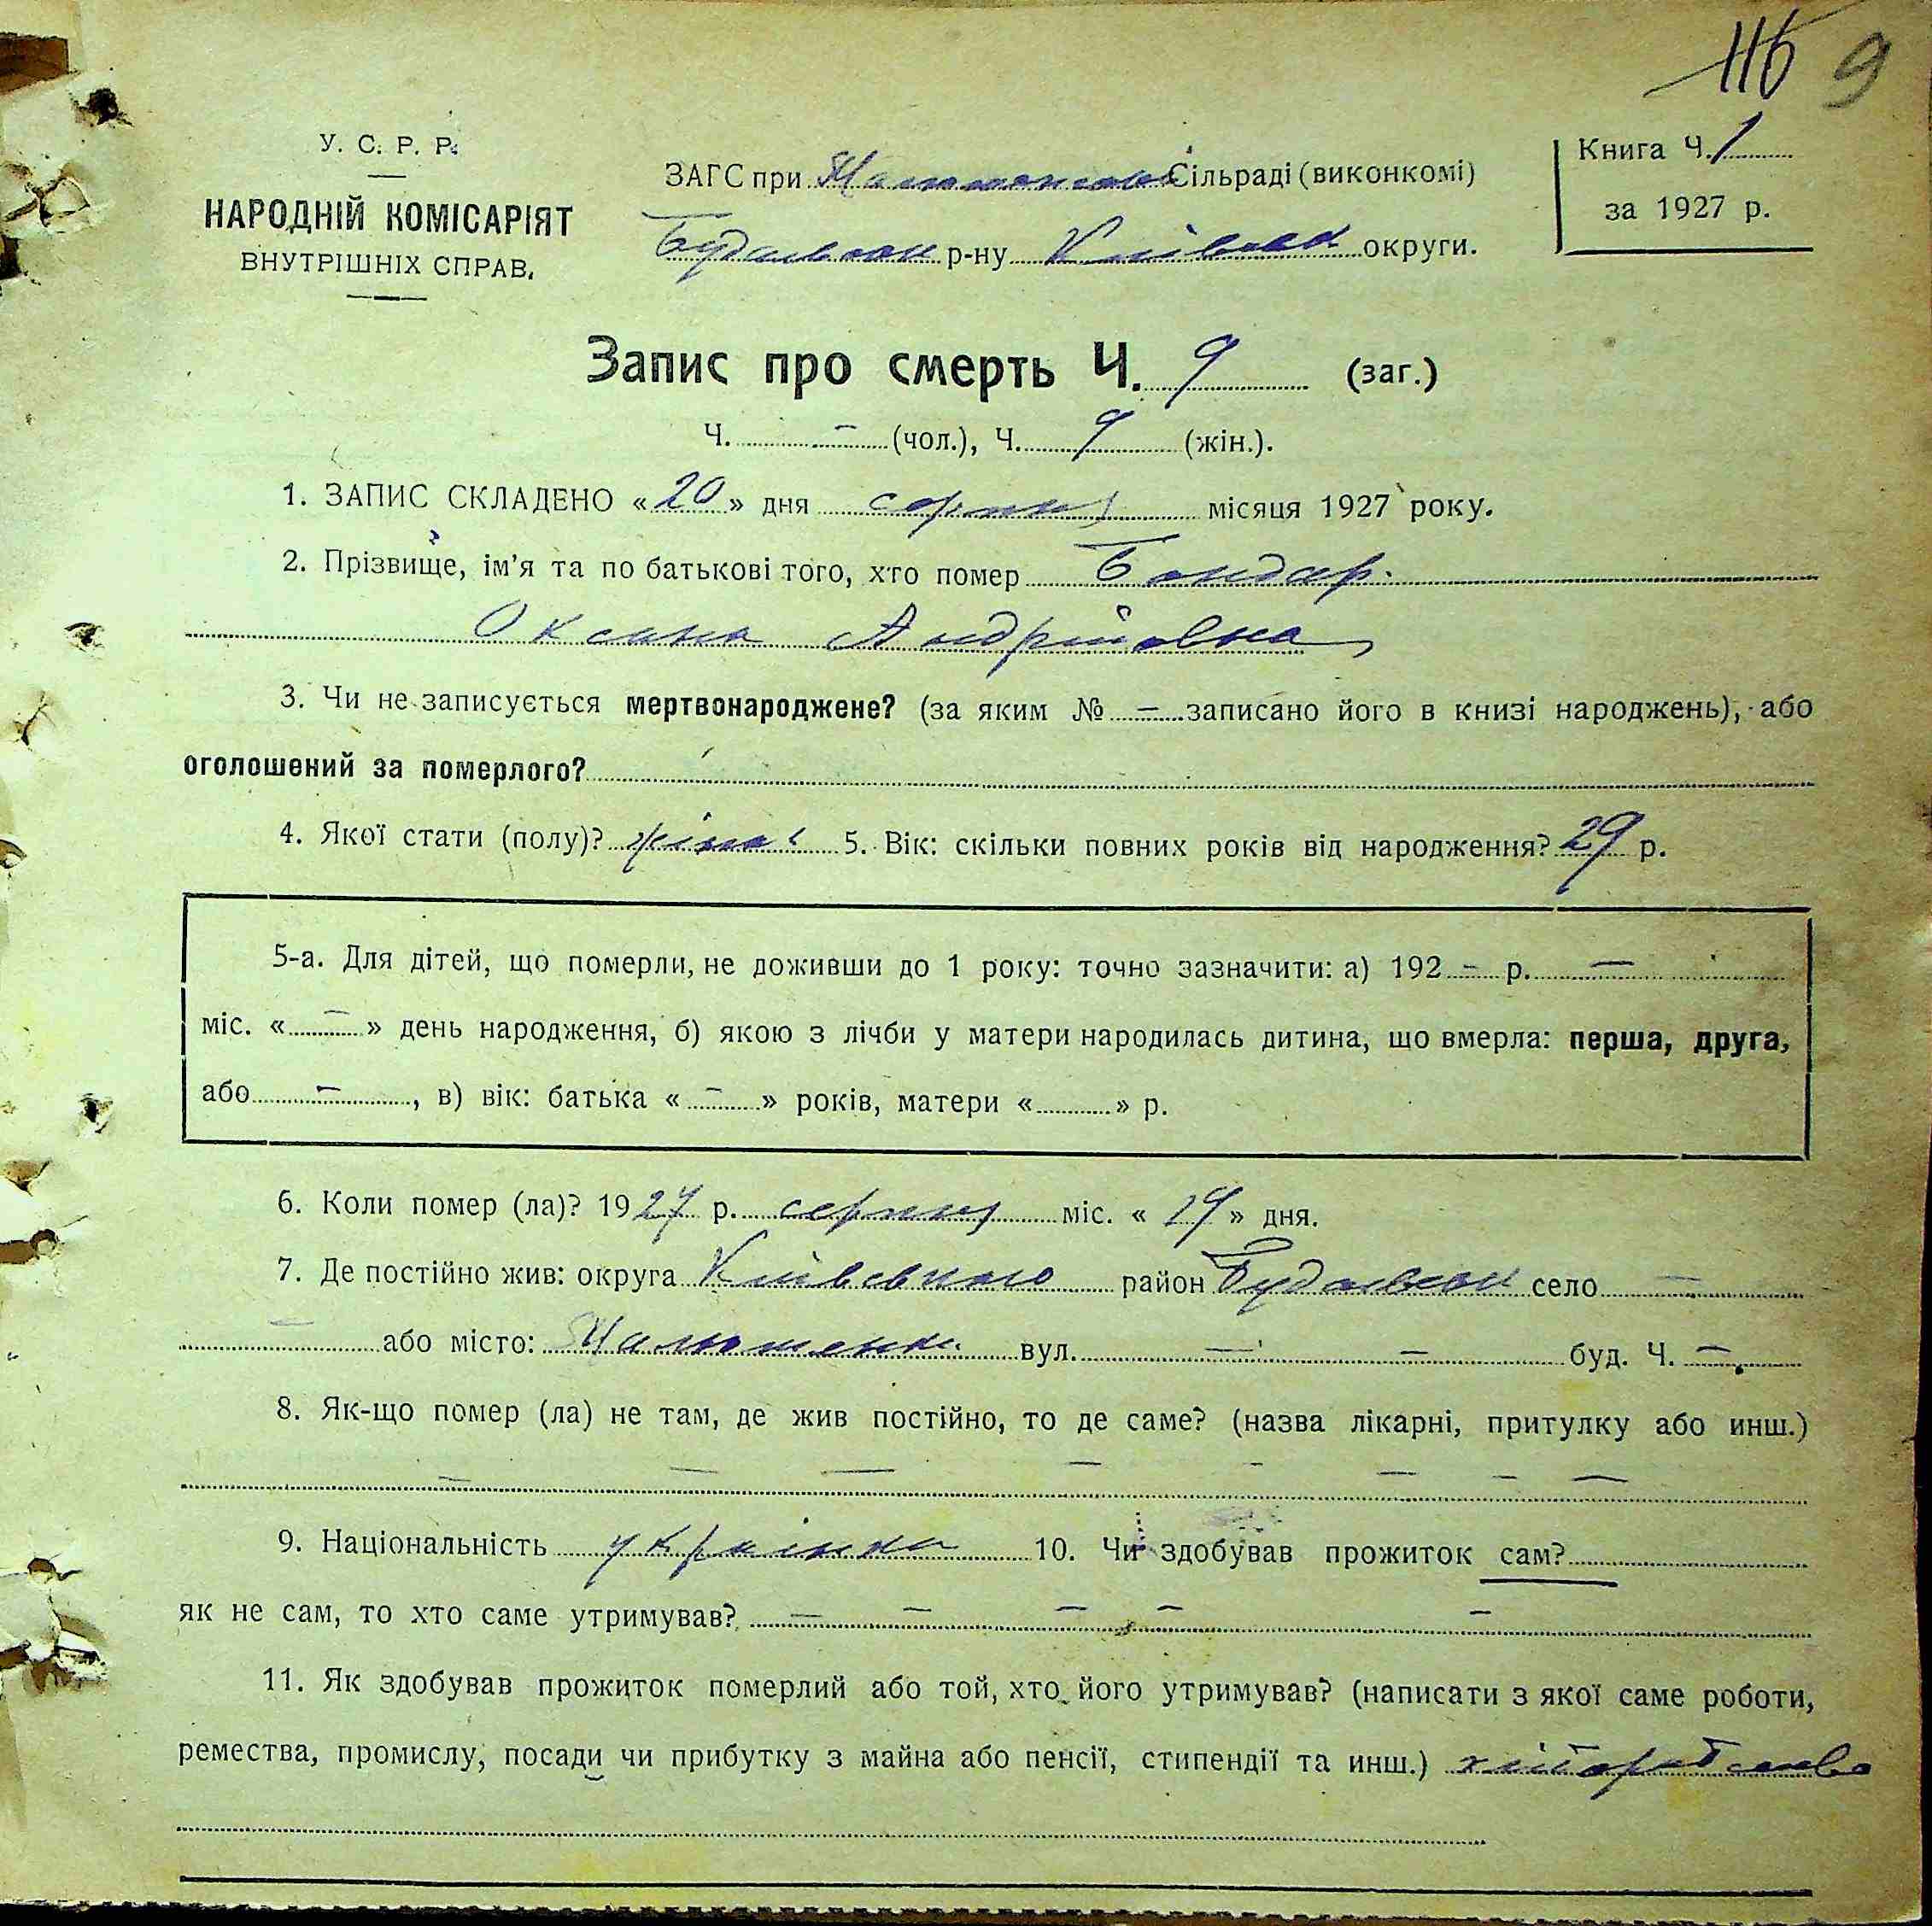 116 9
У. С. Р. Р.
НАРОДНІЙ КОМІСАРІЯТ
ВНУТРІШНІХ СПРАВ.
ЗАГС при Сільраді (виконкомі)
р-ну округи.
Книга Ч. 1
за 1927 р.
Запис про смерть Ч. 9 (заг.)
Ч. – (чол.), Ч. 9 (жін.).
1. ЗАПИС СКЛАДЕНО «20» дня серпня місяця 1927 року.
2. Прізвище, ім'я та по батькові того, хто помер Бондар
Оксана Андріївна
3. Чи не записується мертвонароджене? (за яким № – записано його в книзі народжень), або
оголошений за померлого?
4. Якої стати (полу)? 5. Вік: скільки повних років від народження? 29 р.
5-а. Для дітей, що померли, не доживши до 1 року: точно зазначити: а) 192 – р. –
міс. « – » день народження, б) якою з лічби у матери народилась дитина, що вмерла: перша, друга,
або – , в) вік: батька « – » років, матери « » р.
6. Коли помер (ла)? 1927 р. серпня міс. « 19 » дня.
7. Де постійно жив: округа Київського район село –
– або місто: Малюшенки вул. – – буд. Ч. –
8. Як-що помер (ла) не там, де жив постійно, то де саме? (назва лікарні, притулку або инш.)
– – – – – – – –
9. Національність українка 10. Чи здобував прожиток сам?
як не сам, то хто саме утримував? – – – – –
11. Як здобував прожиток померлий або той, хто його утримував? (написати з якої саме роботи,
ремества, промислу, посади чи прибутку з майна або пенсії, стипендії та инш.) хліборобство